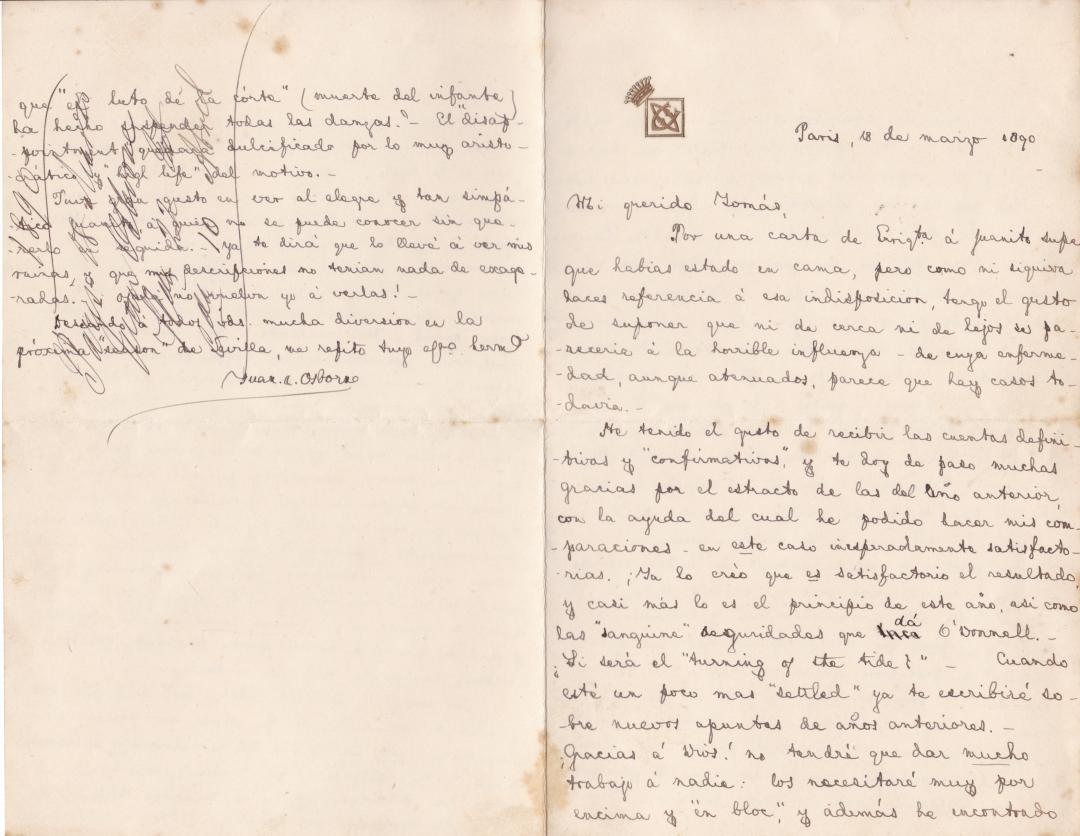 Paris, 18 de marzo 1890
Mi querido Tomás,
Por una carta de Enriqta á Juanito supe
que habías estado en cama, pero como ni siquiera
haces referencia á esa indisposición, tengo el gusto
de suponer que ni de cerca ni de lejos se pa-
-receria á la horrible influenza - de cuya enferme-
-dad, aunque atenuados, parece que hay casos to-
-davia. -
He tenido el gusto de recibir las cuentas defini-
-tivas y "confirmativas", y te doy de paso muchas
gracias por el estracto de las del año anterior,
con la ayuda del cual he podido hacer mis com-
-paraciones - en este caso inesperadamente satisfacto-
-rias. ¡Ya lo creo que es satisfactorio el resultado,
y casi más lo es el principio de este año, asi como
las "sanguine" seguridades que dá O'Donnell. -
¡Si será el "turning of the tide!" - Cuando
esté un poco mas "settled" ya te escribiré so-
-bre nuevos apuntes de años anteriores. -
¡Gracias á Dios! no tendré que dar mucho
trabajo á nadie: los necesitaré muy por
encima y "en bloc", y además he encontrado
que "el luto de la córte" (muerte del infante)
ha hecho suspender todas las danzas. - El "disap-
-pointment" quedará dulcificado por lo muy aristo-
-crático y "high life" del motivo. -
Tuve gran gusto en ver al alegre y tan simpá-
-tico á quien no se puede conocer sin que-
-rerlo en seguida. - ya te dirá que lo llevé á ver mis
ruinas, y que mis descripciones no tenian nada de exage-
-radas. - ¡Ojalá no vuelva yo á verlas! -
Deseando á todos Vds. mucha diversion en la
próxima "season" de Sevilla, me repito tuyo affmo hermo
Juan. N. Osborne